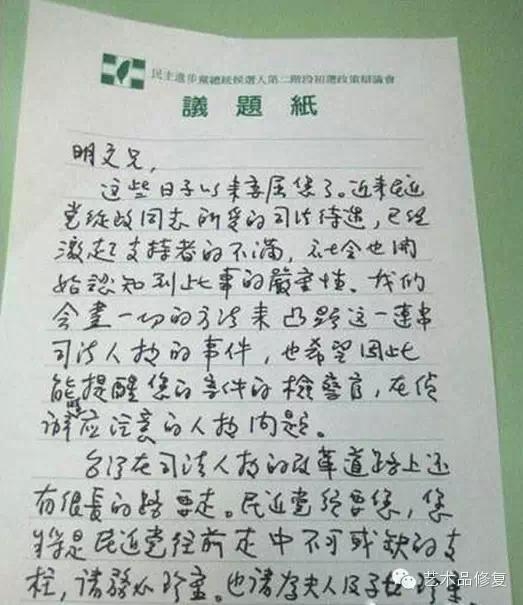 民主進步黨總統候選人第二階段初選政策辯論會
議題紙
明文兄,
这些日子以来委屈您了。近来民进
党從政同志所受的司法待遇,已經
激起支持者的不滿,社会也開
始認知到此事的嚴重性。我們
会盡一切的方法来凸顯这一連串
司法人权的事件,也希望因此
能提醒您的案件的檢警官,在偵
辦時应注意的人权問題。
台湾在司法人权的改革道路上还
有很長的路要走。民进党要您,您
是民进党往前走中不可或缺的支
柱,請務必珍重。也請夫人及子女
艺术品修复